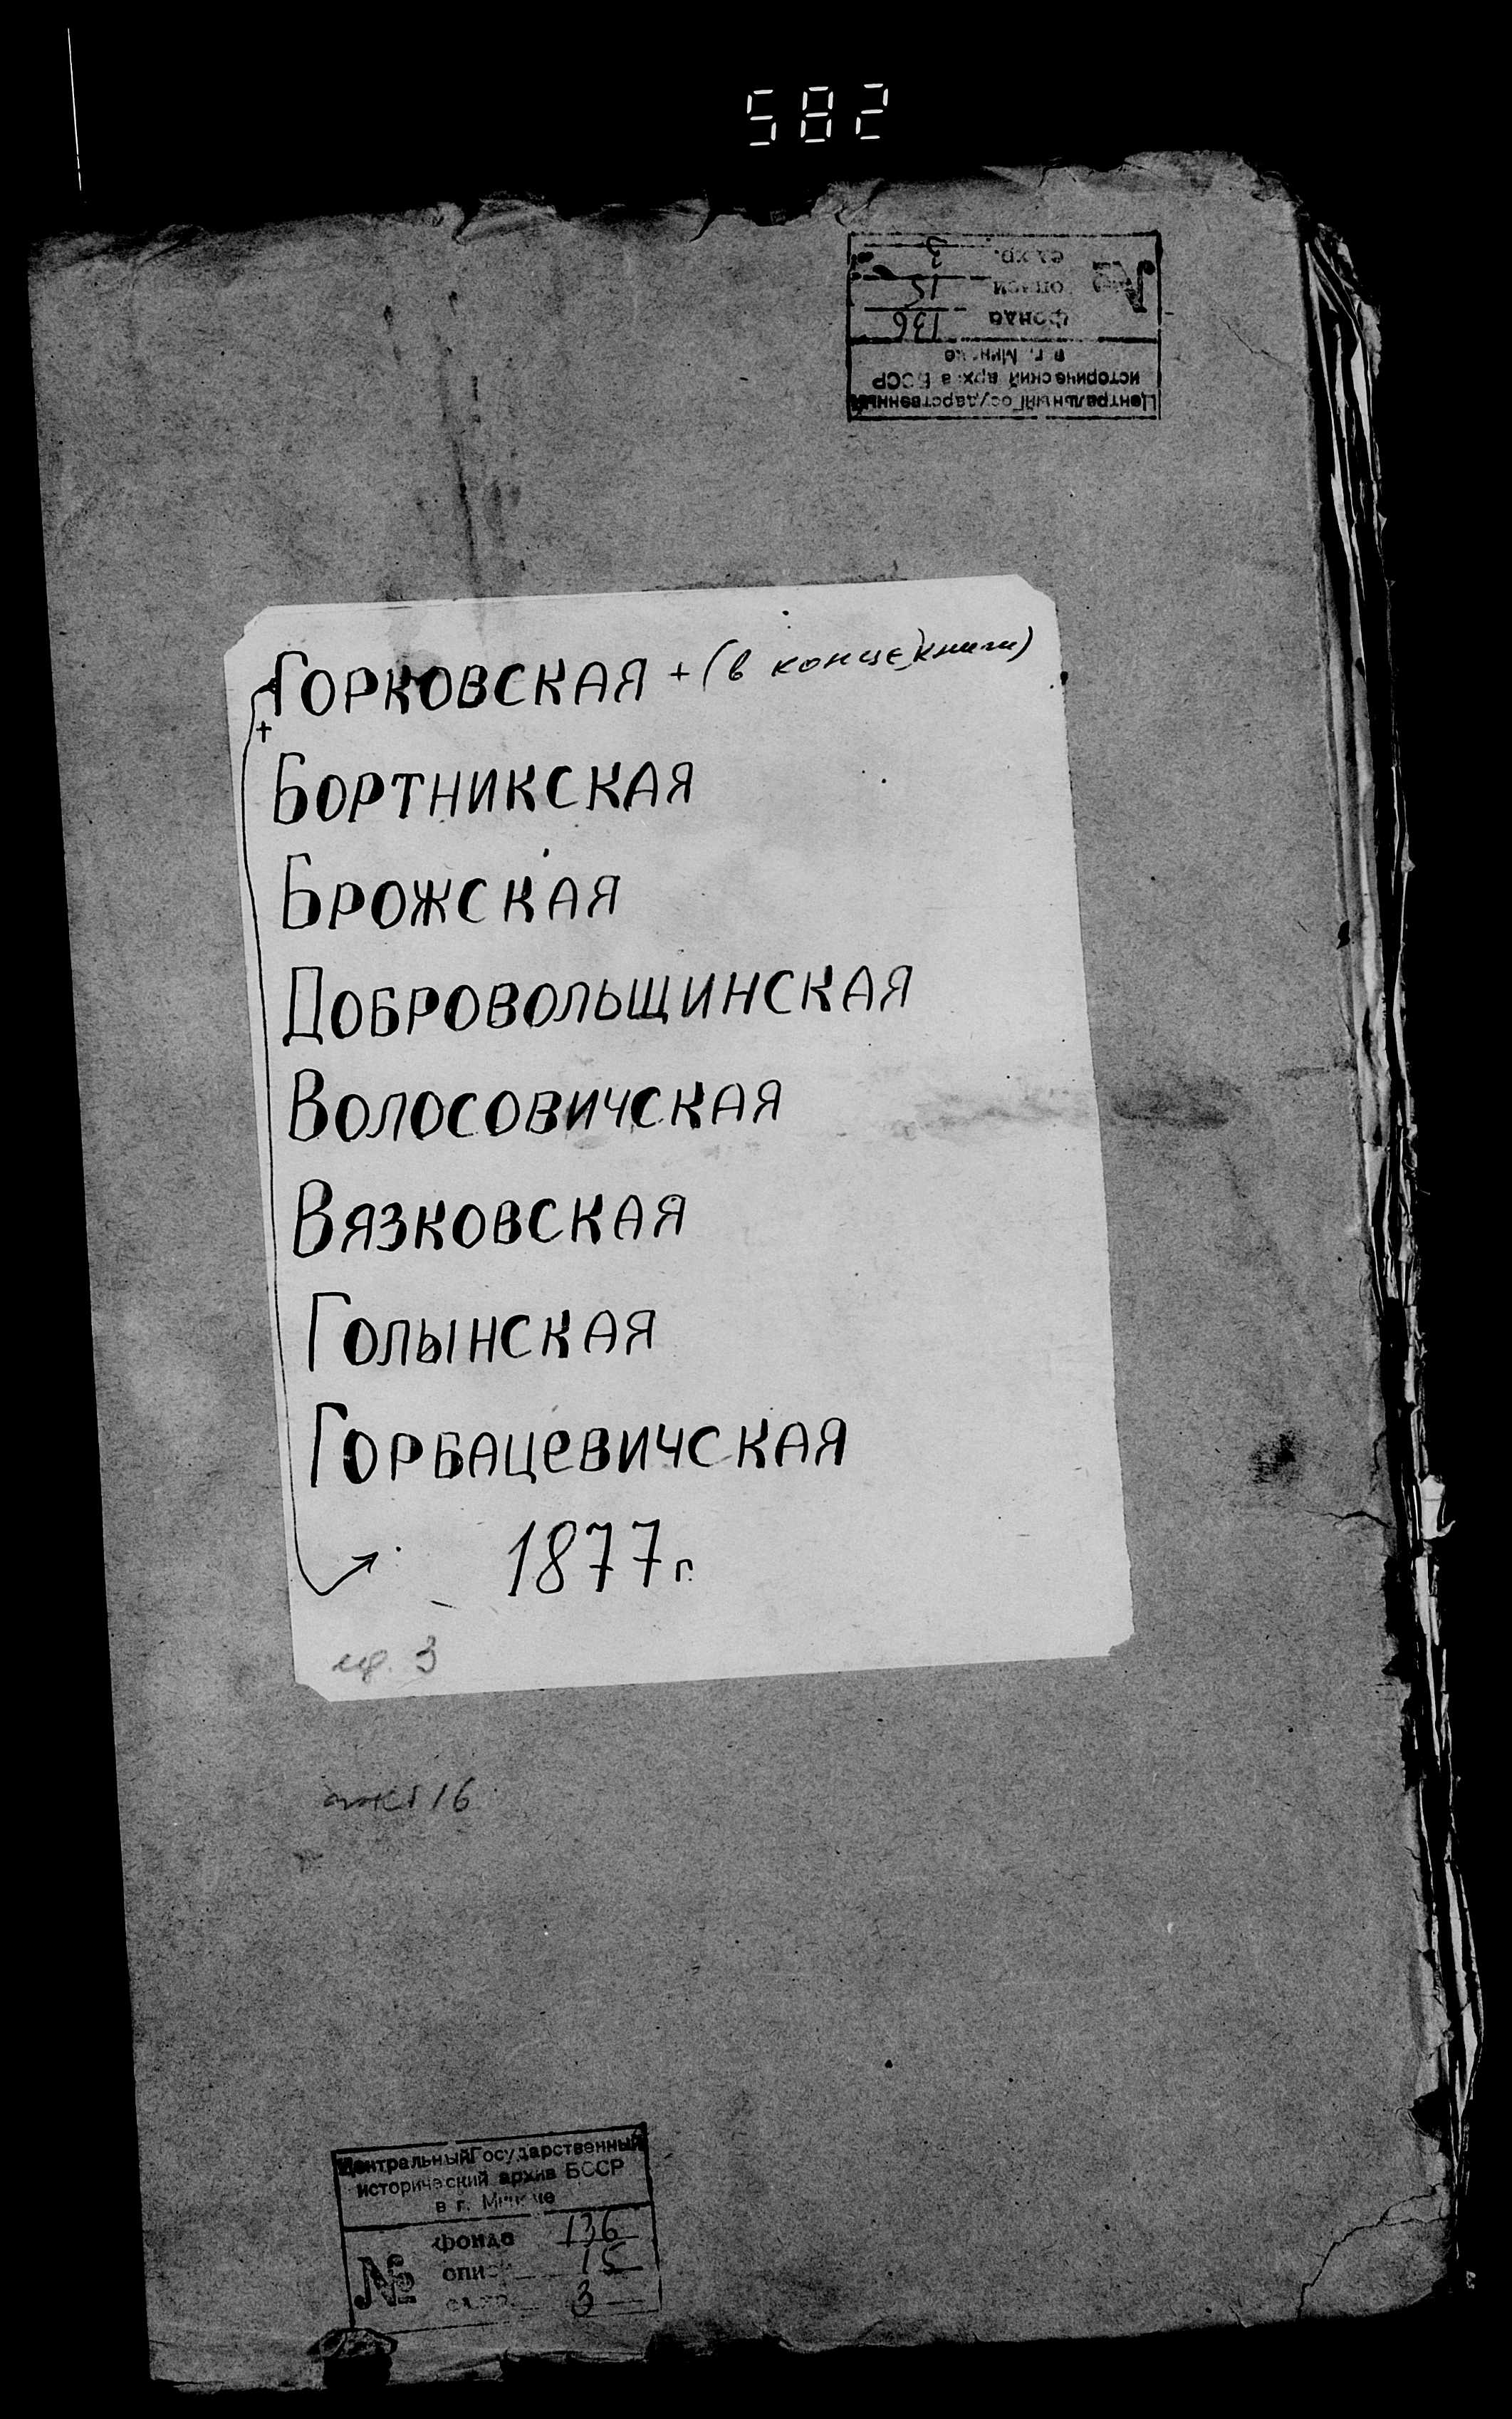 582
Центральный Государственный
исторический архив БССР
в г. Минске
№
фонда 136
описи 15
ед. хр. 3
Горковская + (в конце книги)
+
Бортникская
Брожская
Добровольщинская
Волосовичская
Вязковская
Голынская
Горбацевичская
1877 г.
3
16
Центральный Государственный
исторический архив БССР
в г. Минске
№
фонда 136
описи 15
ед. хр. 3